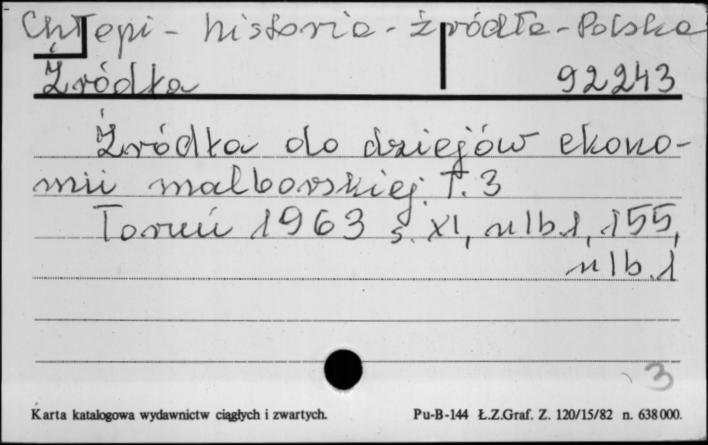 Chłopi - historia - źródła - Polska
Źródła 92243
Źródła do dziejów ekono-
mii malborskiej. T. 3
Toruń 1963 s. XL, nlb. 1, 155,
nlb. 1
3
Karta katalogowa wydawnictw ciągłych i zwartych. Pu-B-144 Ł.Z.Graf. Z. 120/15/82 n. 638000.